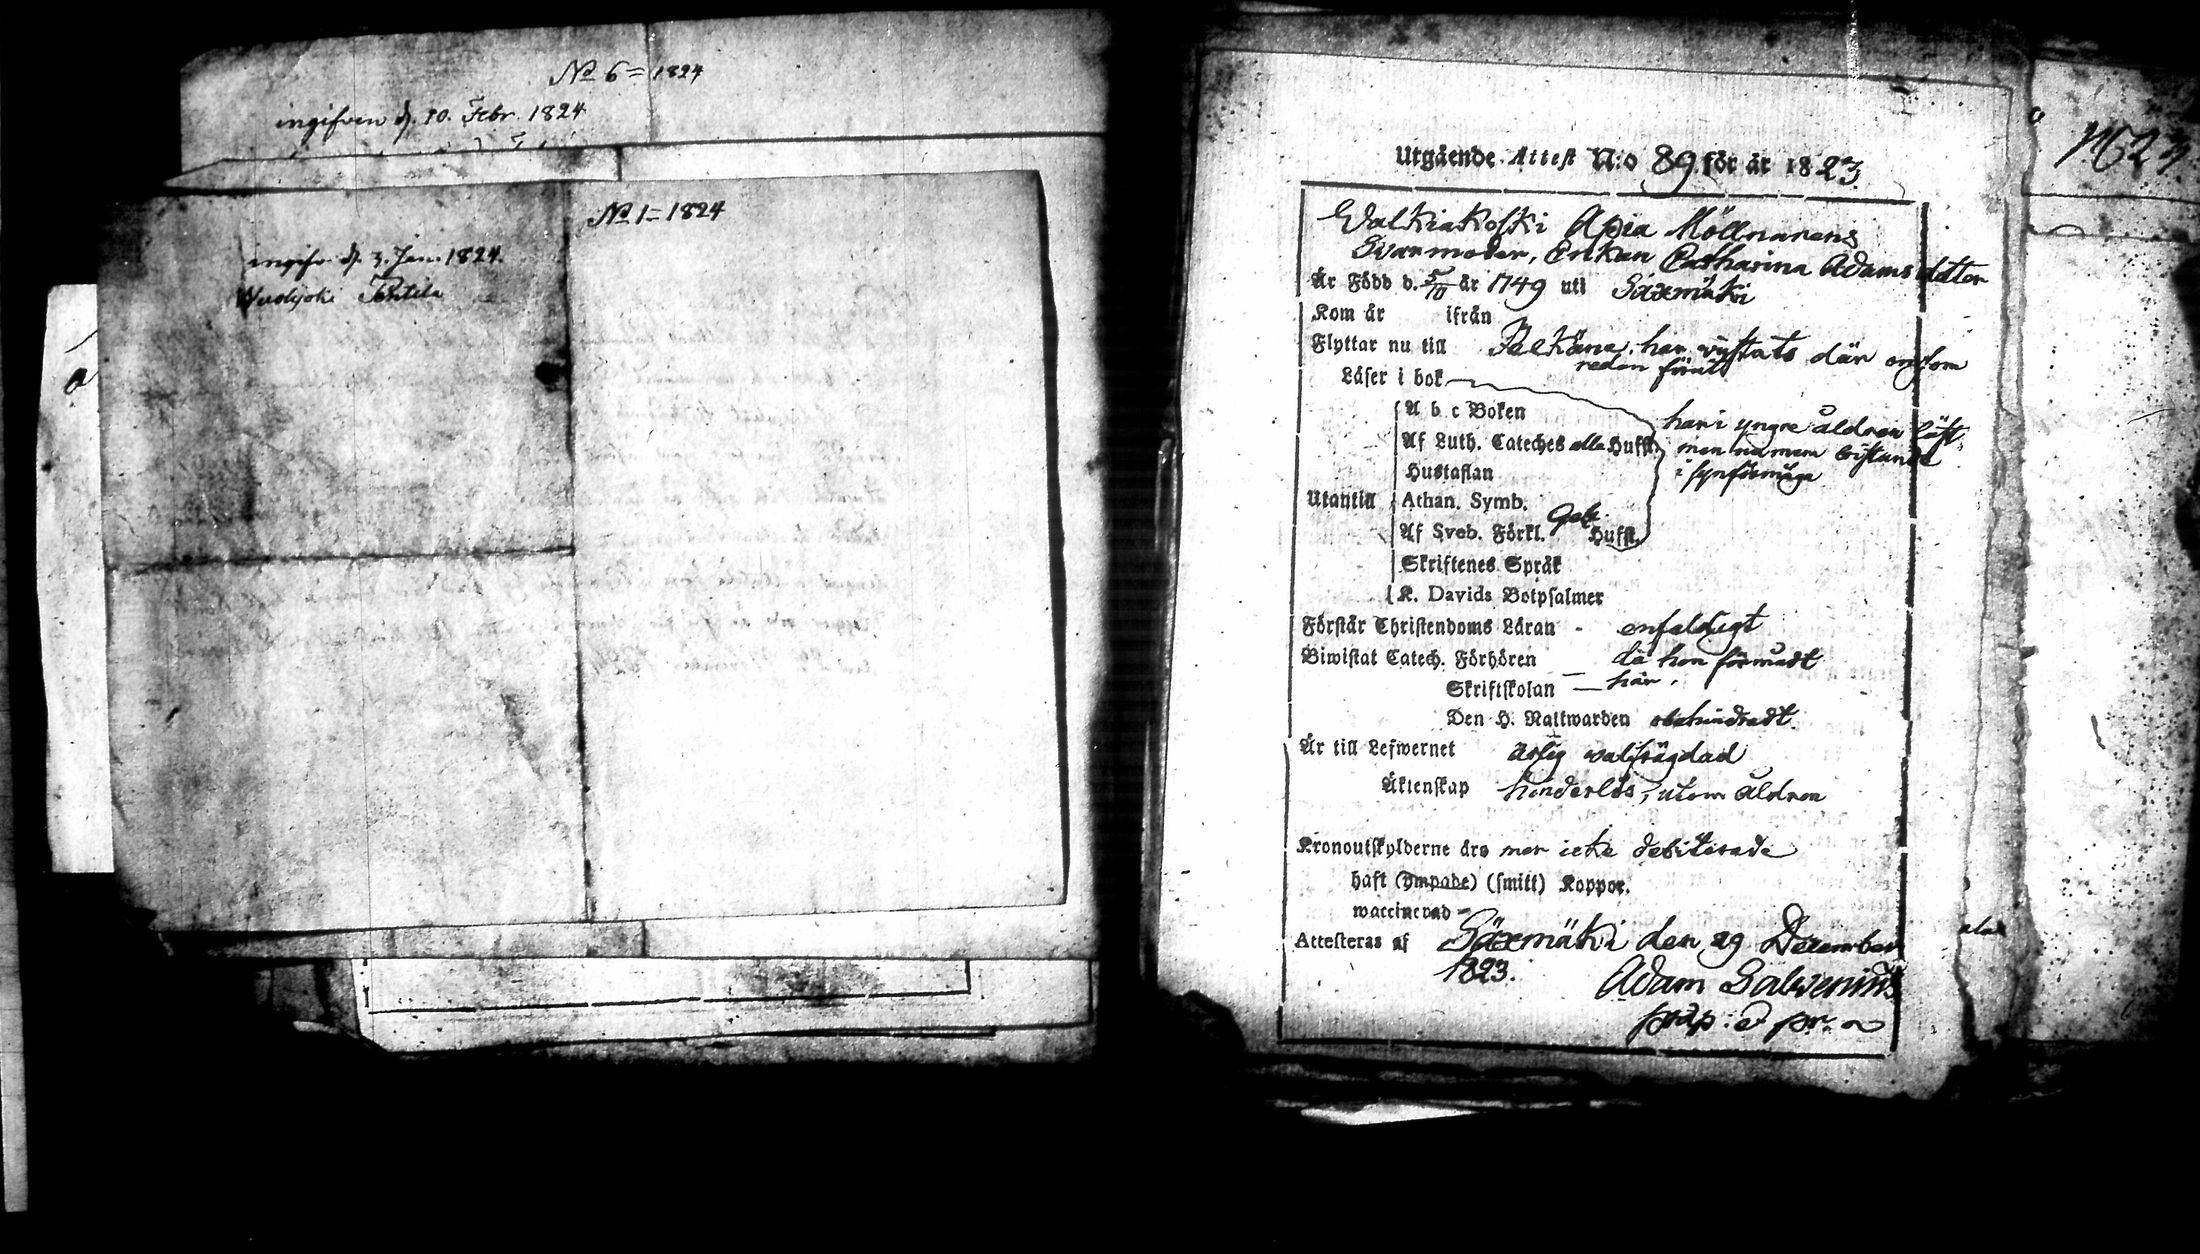 No 6 = 1824
ingifven d. 10. Febr. 1824
No 1 = 1824
ingifv. d. 3. Jan. 1824.
Wuolijoki Pentila
Utgående Attest N:o 89 för år 1823.
Walkiakoski Apia Möllnarens
Svarmoder, Enkan Catharina Adamsdotter
Är Född d. 5/10 år 1749 uti Säxmäki
Kom år ifrån
Flyttar nu till Pelkäne, har vistats där
redan förut
Läser i bok
A b c Boken
har i yngre åldren läst,
Af Luth. Cateches alla Hufst.
men numera bristande
Hustaflan
i synförmåga
Utantill
Athan. Symb.
Af Sveb. Förkl. Hufst.
Skriftenes Språk
K. Davids Botpsalmer
Förstår Christendoms Läran - enfaldigt
Biwistat Catech. Förhören — då hon förmådt
Skriftskolan — här.
Den H. Nattwarden obehindradt.
Är till Lefwernet ärlig välfrägdad
Äktenskap hinderlös, utom åldren
Kronoutskylderne äro mer icke debiterade
haft (ympade) (smitt) Koppor.
waccinerad -
Attesteras af Säxmäki den 29 December
1823.
Adam Salvenius
præp. & p